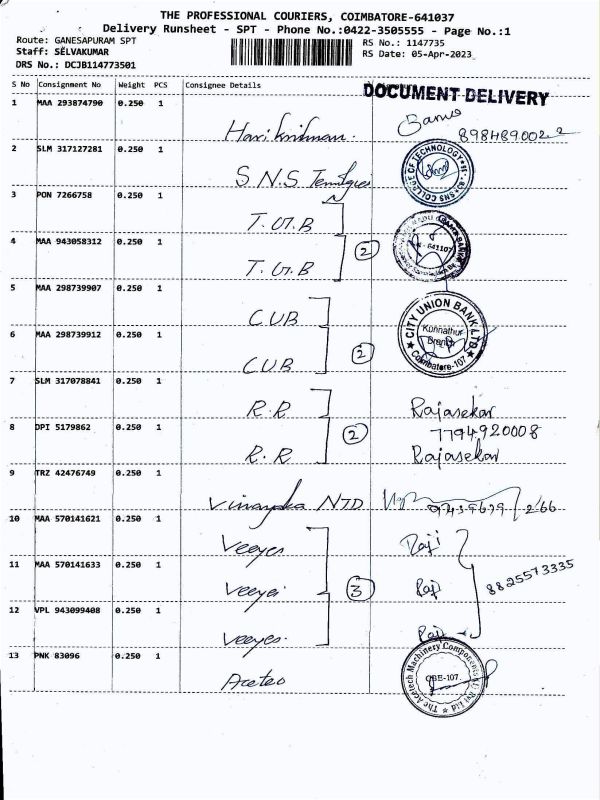 THE PROFESSIONAL COURIERS, COIMBATORE-641037
Delivery Runsheet - SPT - Phone No.:0422-3505555 - Page No.:1
Route: GANESAPURAM SPT
RS No.: 1147735
Staff: SELVAKUMAR
RS Date: 05-Apr-2023
DRS No.: DCJB114773501
S No Consignment No Weight PCS Consignee Details
DOCUMENT DELIVERY
1 MAA 293874790 0.250 1
Harikrishnan.
2 SLM 317127281 0.250 1
S.N.S
SNS COLLEGE OF TECHNOLOGY
3 PON 7266758 0.250 1
4 MAA 943058312 0.250 1
2
641107
5 MAA 298739907 0.250 1
CUB
6 MAA 298739912 0.250 1
CUB
2
CITY UNION BANK LTD
Kunnathur
Branch
Coimbatore-107
7 SLM 317078841 0.250 1
R.R Rajasekar
8 DPI 5179862 0.250 1
2 7794920008
R.R Rajasekar
9 TRZ 42476749 0.250 1
10 MAA 570141621 0.250 1
Veeyes Raji
11 MAA 570141633 0.250 1
3 8825573335
Raji
12 VPL 943099408 0.250 1
Veeyes. Raji
13 PNK 83096 0.250 1
The Acetech Machinery Components
CBE-107